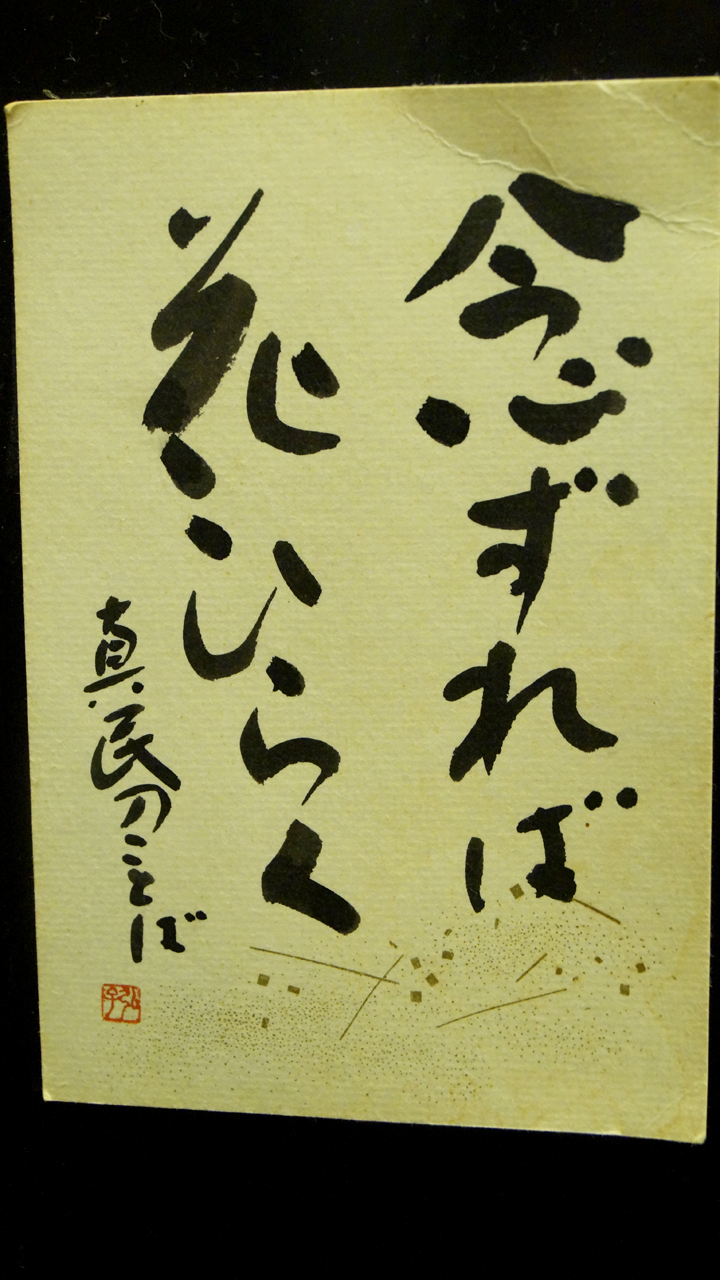 念ずれば
花ひらく
真民のことば